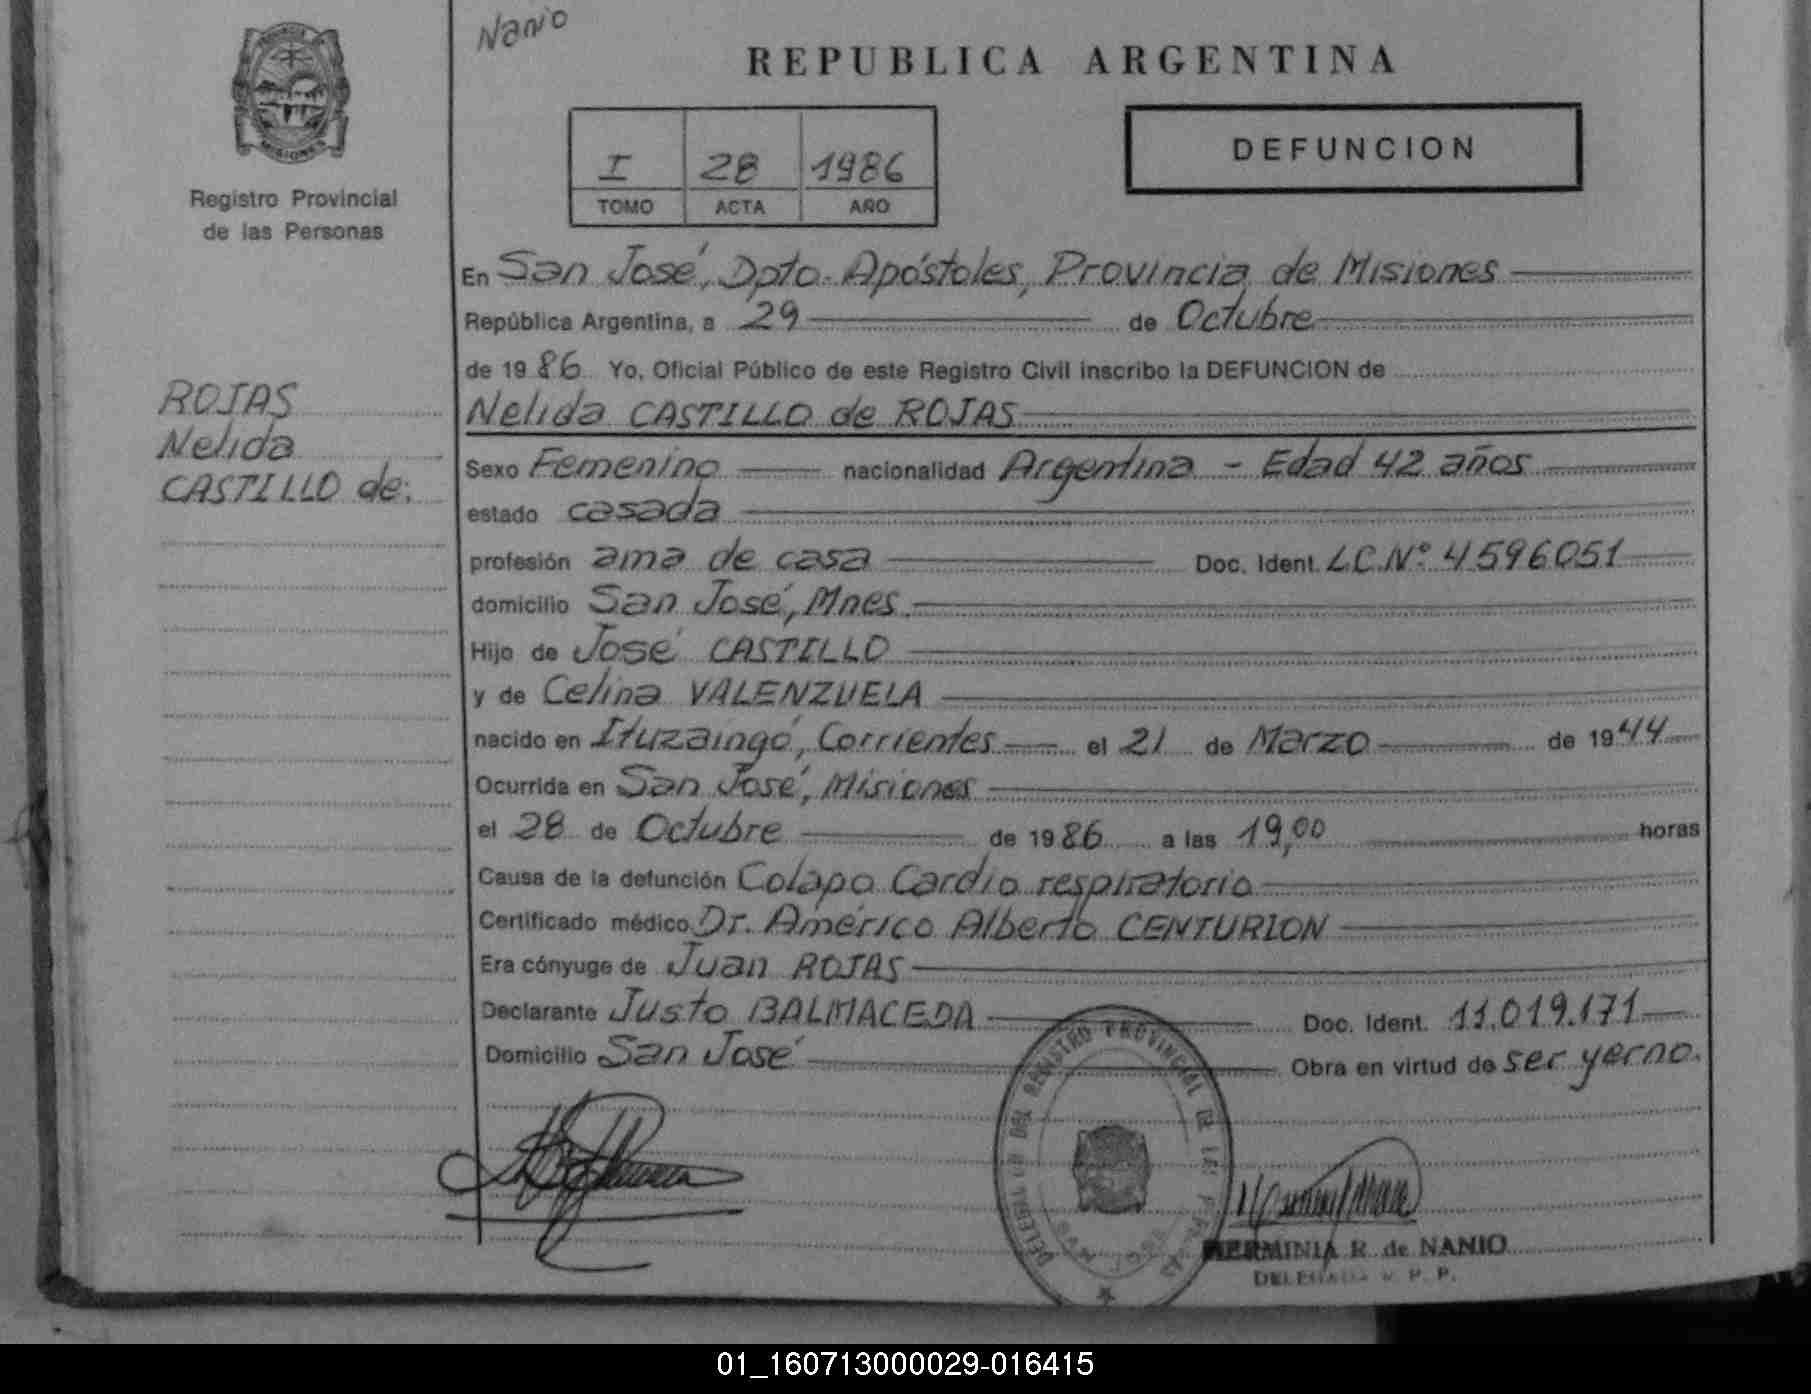 Nanio
REPUBLICA ARGENTINA
MISIONES
Registro Provincial
de las Personas
I 28 1986
TOMO ACTA AÑO
DEFUNCION
En San José, Dpto. Apóstoles, Provincia de Misiones
República Argentina, a 29 de Octubre
de 1986 Yo, Oficial Público de este Registro Civil inscribo la DEFUNCION de
Nelida CASTILLO de ROJAS
ROJAS
Nelida
CASTILLO de:
Sexo Femenino nacionalidad Argentina - Edad 42 años
estado casada
profesión ama de casa Doc. Ident. L.C.Nº 4596051
domicilio San José, Mnes.
Hijo de José CASTILLO
y de Celina VALENZUELA
nacido en Ituzaingó, Corrientes el 21 de Marzo de 1944
Ocurrida en San José, Misiones
el 28 de Octubre de 1986 a las 19,00 horas
Causa de la defunción Colapo Cardio respiratorio
Certificado médico Dr. Américo Alberto CENTURION
Era cónyuge de Juan ROJAS
Declarante Justo BALMACEDA Doc. Ident. 11.019.171
Domicilio San José Obra en virtud de ser yerno.
REGISTRO PROVINCIAL DE
HERMINIA R. de NANIO
DELEGADA R. P. P.
01_160713000029-016415